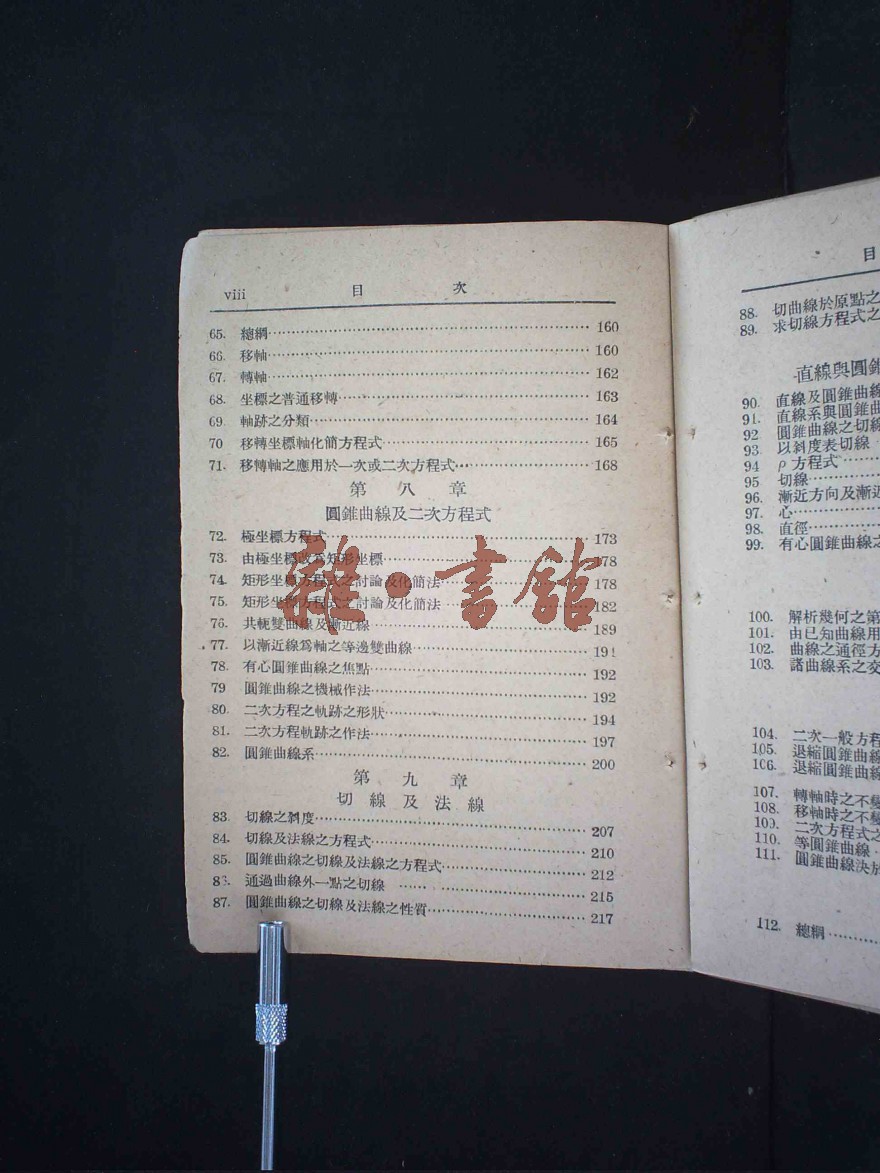 viii 目 次
65. 總綱 160
66. 移軸 160
67. 轉軸 162
68. 坐標之普通移轉 163
69. 軸跡之分類 164
70 移轉坐標軸化簡方程式 165
71. 移轉軸之應用於一次或二次方程式 168
第 八 章
圓錐曲線及二次方程式
72. 極坐標方程式 173
73. 由極坐標改為矩形坐標 178
74. 矩形坐標方程式之討論及化簡法 178
75. 矩形坐標方程式之討論及化簡法 182
76. 共軛雙曲線及漸近線 189
77. 以漸近線爲軸之等邊雙曲線 191
78. 有心圓錐曲線之焦點 192
79 圓錐曲線之機械作法 192
80. 二次方程之軌跡之形狀 194
81. 二次方程軌跡之作法 197
82. 圓錐曲線系 200
第 九 章
切 線 及 法 線
83. 切線之斜度 207
84. 切線及法線之方程式 210
85. 圓錐曲線之切線及法線之方程式 212
86. 通過曲線外一點之切線 215
87. 圓錐曲線之切線及法線之性質 217
雜·書館
目
88. 切曲線於原點之
89. 求切線方程式之
直線與圓錐
90. 直線及圓錐曲線
91. 直線系與圓錐曲
92 圓錐曲線之切線
93 以斜度表切線
94 ρ方程式
95 切線
96. 漸近方向及漸近
97. 心
98. 直徑
99. 有心圓錐曲線之
100. 解析幾何之第
101. 由已知曲線用
102. 曲線之通徑方
103. 諸曲線系之交
104. 二次一般方程
105. 退縮圓錐曲線
106. 退縮圓錐曲線
107. 轉軸時之不變
108. 移軸時之不變
109. 二次方程式之
110. 等圓錐曲線
111. 圓錐曲線決於
112. 總綱